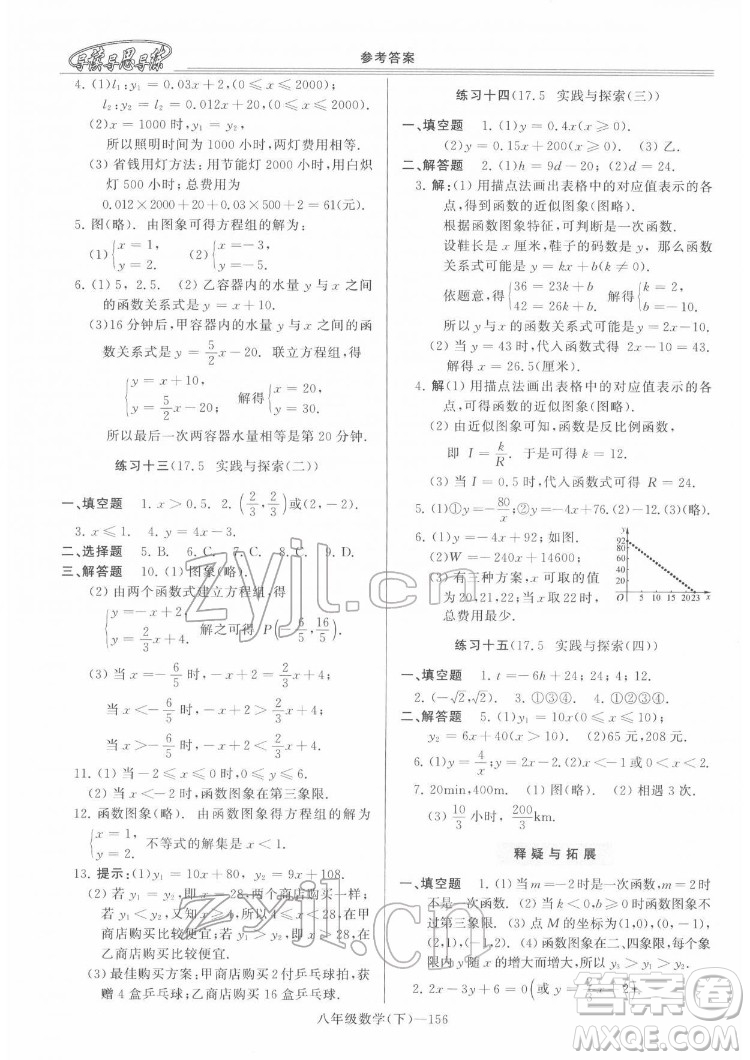 导读导思导练
参考答案
4. (1)l₁:y₁=0.03x+2,(0≤x≤2000);
l₂:y₂=0.012x+20,(0≤x≤2000)
(2)x=1000 时,y₁=y₂
所以照明时间为 1000 小时,两灯费用相等.
(3) 省钱用灯方法:用节能灯 2000 小时,用白炽
灯 500 小时;总费用为
0.012×2000+20+0.03×500+2=61(元).
5. 图(略). 由图象可得方程组的解为:
(1){x=1, y=2. (2){x=-3, y=-2.
6. (1) 5,2.5. (2) 乙容器内的水量 y 与 x 之间
的函数关系式是 y=x+10.
(3)16 分钟后,甲容器内的水量 y 与 x 之间的函
数关系式是 y=5/2x-20. 联立方程组,得
{y=x+10, y=5/2x-20. 解得{x=20, y=30.
所以最后一次两容器水量相等是第 20 分钟.
练习十三(17.5 实践与探索(二))
一、填空题 1. x>0.5. 2. (2/3,2/3)或(2,-2).
3. x≤1. 4. y=4x-3.
二、选择题 5. B. 6. C. 7. C. 8. C. 9. D.
三、解答题 10. (1) 图象(略).
(2) 由两个函数式建立方程组,得
{y=-x+2, y=2/3x+4. 解之可得 P(-6/5,16/5)
(3) 当 x=-6/5 时,-x+2=2/3x+4;
当 x<-6/5 时,-x+2>2/3x+4;
当 x>-6/5 时,-x+2<2/3x+4.
11. (1) 当 -2≤x≤0 时,-2≤y≤0.
(2) 当 x<-2 时,函数图象在第三象限.
12. 函数图象(略). 由函数图象得方程组的解为
{x=1, y=1. 不等式的解集是 x>1.
13. 提示:(1)y₁=10x+80, y₂=9x+108.
(2) 若 y₁>y₂,则 x>28,在乙商店购买比较便宜;
若 y₁<y₂,又知 x≥4,则 4≤x<28,在甲
商店购买比较便宜;若 y₁=y₂,则 x=28,在甲
乙商店购买比较便宜.
(3) 最佳购买方案:甲商店购买 2 付乒乓球拍,
获赠 4 盒乒乓球;乙商店购买 16 盒乒乓球.
练习十四(17.5 实践与探索(三))
一、填空题 1. (1)y=0.4x(x≥0).
(2)y=0.15x+200(x≥0). (3) 乙.
二、解答题 2. (1)h=9d-20. (2)d=24.
3. 解:(1) 用描点法画出表格中的对应值表示的各
点,得到函数的近似图象(图略).
根据函数图象特征,可判断是一次函数.
设鞋长是 x,鞋子的码数是 y,那么函数
关系式可设为 y=kx+b(k≠0).
依题意,得{36=23k+b, 42=26k+b. 解得{k=2, b=-10.
所以 y 与 x 的函数关系式为 y=2x-10.
(2) 当 y=43 时,代入函数关系式得 2x-10=43.
解得 x=26.5(厘米).
4. 解(1) 用描点法画出表格中的对应值表示的各
点,得到函数的近似图象(图略).
(2) 由近似图象可知,函数是反比例函数,
即 I=k/R. 于是可得 k=12.
(3) 当 I=0.5 时,代入函数式可得 R=24.
5. (1)①y=-80/x;②y=-4x+76. (2)-12. (3)④.
6. (1)y=-4x+92;如图.
(2)W=-240x+14600;
(3) 有三种方案,x 可取的值
为 20,21,22,当 x 取 22 时,
总费用最少.
y
92
80
60
40
20
O 5 10 15 20 23 x
练习十五(17.5 实践与探索(四))
一、填空题 1. t=-6h+24;24;4.
2. (-√2,√2). 3. ①③④. 4. ①③④.
二、解答题 5. (1)y₁=10x(0≤x≤10);
y₂=6x+40(x>10). (2)65 元,208 元.
6. (1)y=4/x;(2)x<-1 或 0<x<2.
7. 20min;48km. (2) 图略,相遇 3 次.
(3) 10/3 小时,200/3 km.
释疑与拓展
一、填空题 1. (1) 当 m=-2 时是一次函数,当 m=2 时
不是一次函数. (2) 当 x=-2 时,函数值为 9;当 x<2 时
函数值大于 1. (3) 点 M 的坐标为 (1,0),(1,2),
(2,1),(-2,1). (4) 函数图象在二、四象限,每个象
限 y 随 x 的增大而增大. (5)a=0
八年级数学(下)—156
zyjl.cn
zyjl.cn
答案圈